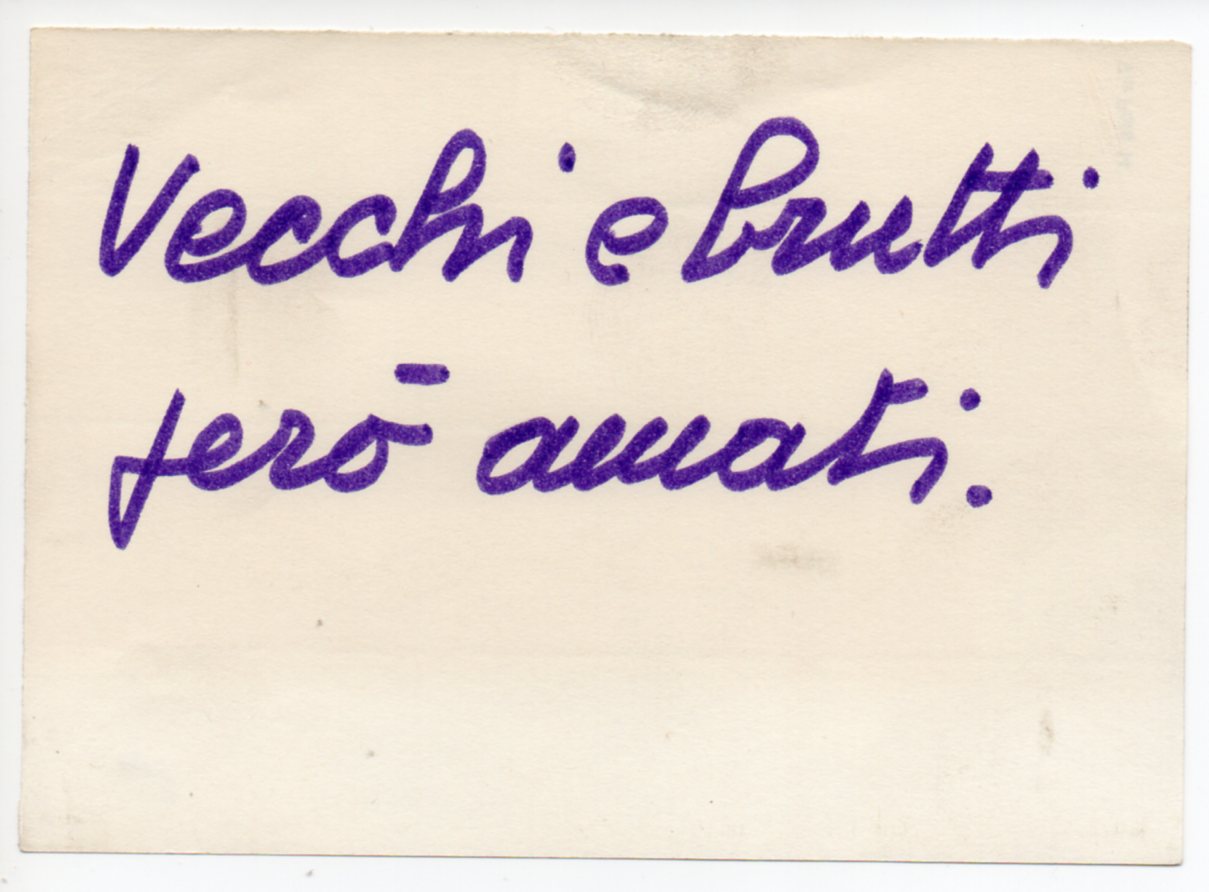 Vecchi e brutti
però amati.